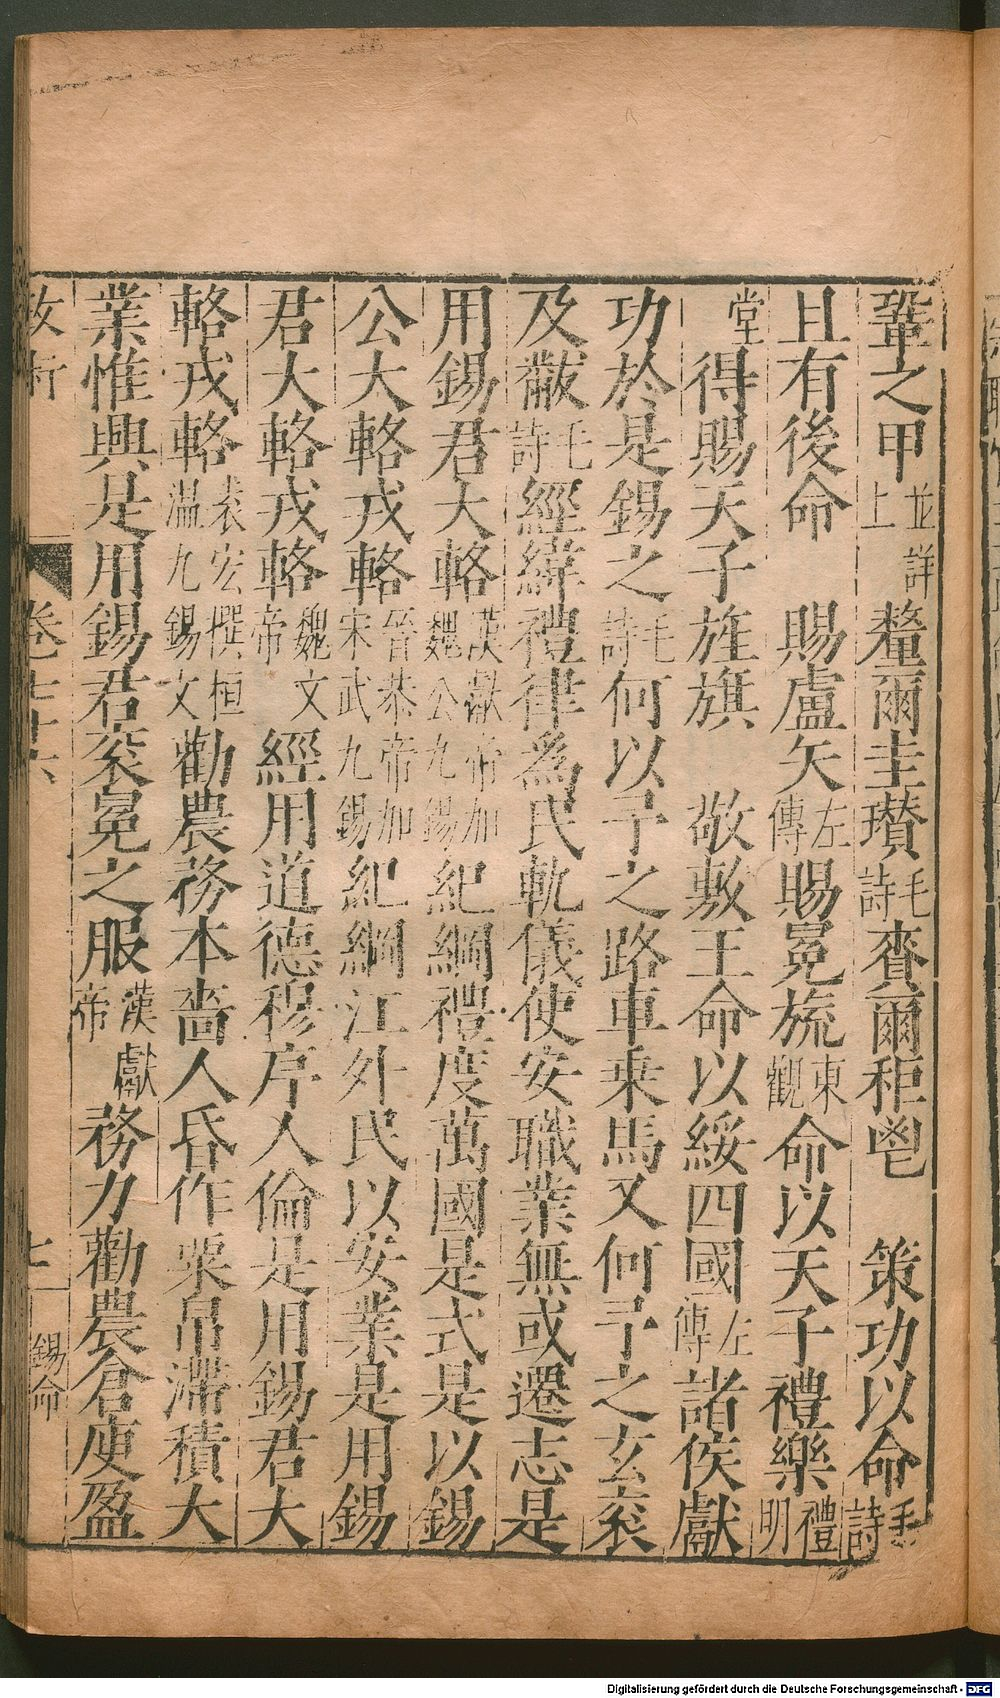 鞏之甲並詳上 釐爾圭瓚毛詩賚爾秬鬯 策功以命毛詩
且有後命 賜盧矢左傳賜冕旒東觀命以天子禮樂禮明
堂 得賜天子旌旗 敬敷王命以綏四國左傳諸侯獻
功於是錫之毛詩何以予之路車乘馬又何予之玄衮
及黻毛詩經緯禮律為民軌儀使安職業無或遷志是
用錫君大輅漢獻帝加魏公九錫紀綱禮度萬國是式是以錫
公大輅戎輅晉恭帝加宋武九錫紀綱江外民以安業是用錫
君大輅戎輅魏文帝 經用道德穆序人倫是用錫君大
輅戎輅袁宏撰桓溫九錫文 勸農務本嗇人昏作粟帛滯積大
業惟興是用錫君衮冕之服漢獻帝務力勸農倉庾盈
卷 七 錫命
Digitalisierung gefördert durch die Deutsche Forschungsgemeinschaft - DFG